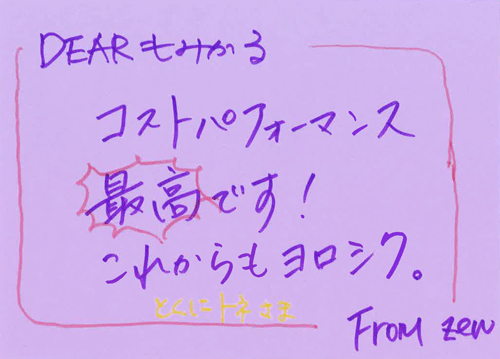 DEAR もみかる
コストパフォーマンス
最高です！
これからもヨロシク。
とくにトネさま
From zen